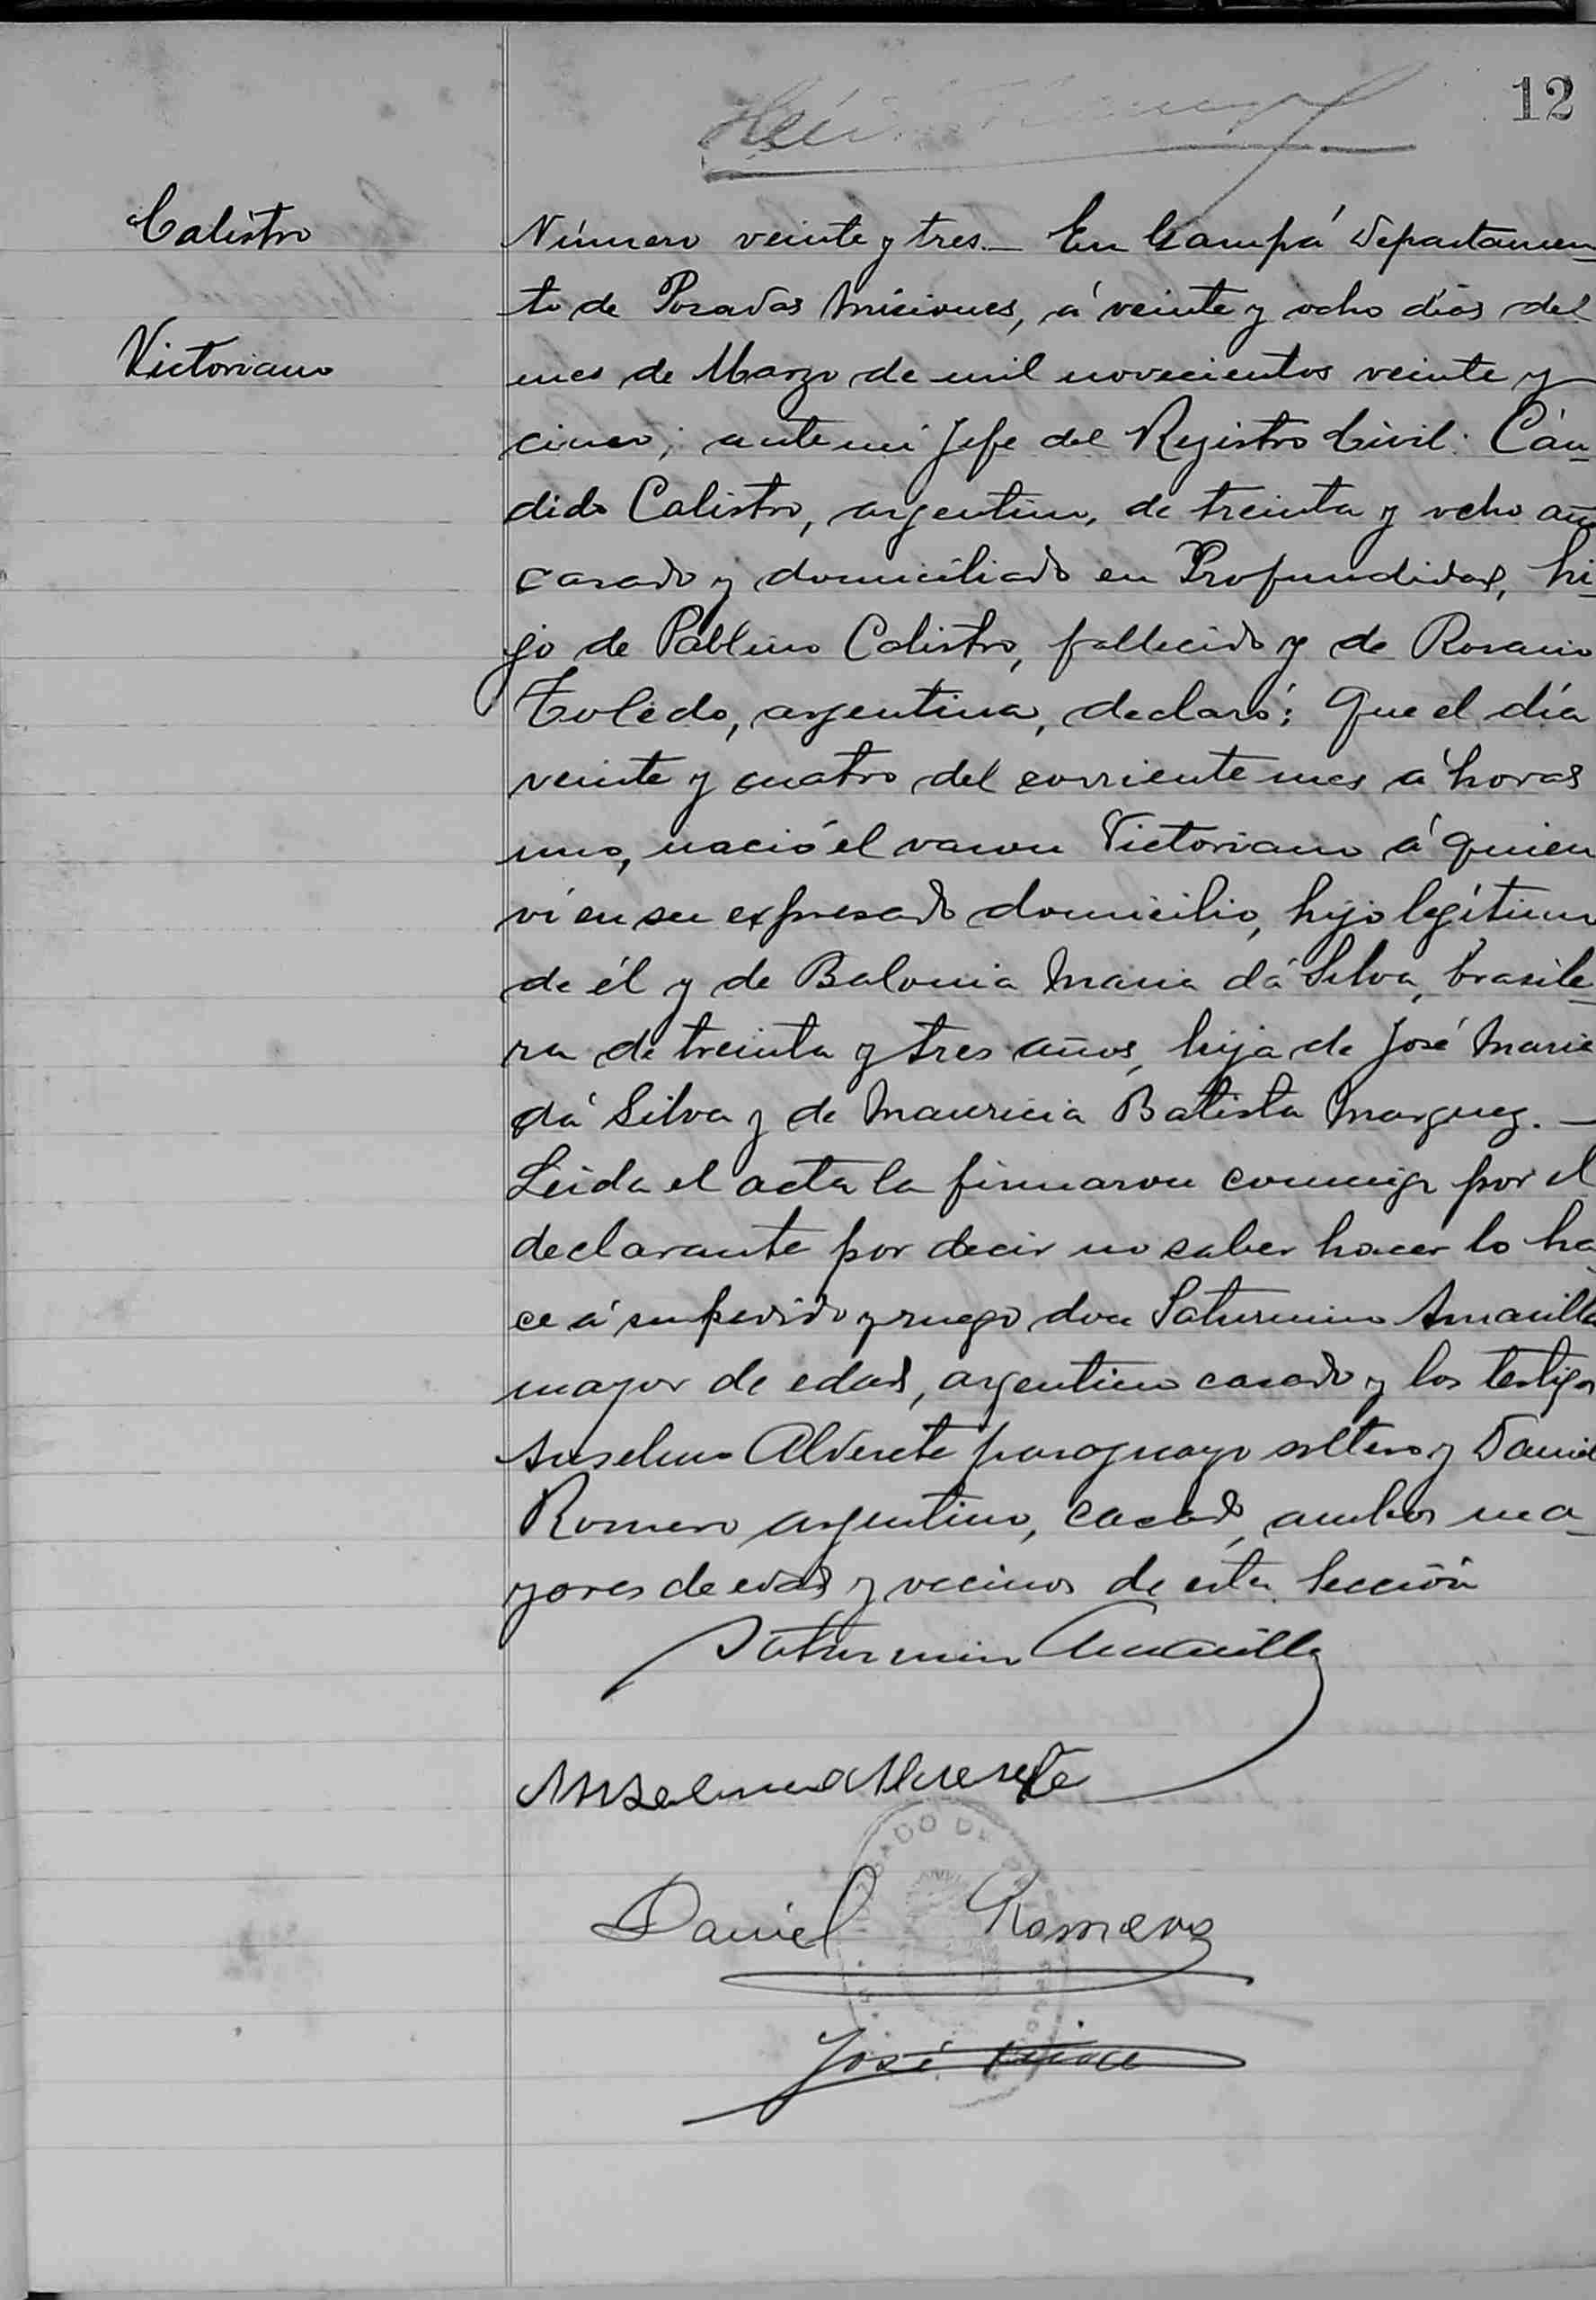 12
Calistro
Victoriano
Número veinte y tres.— En Campá Departamen-
to de Posadas Misiones, á veinte y ocho días del
mes de Marzo de mil novecientos veinte y
cinco; ante mi Jefe del Registro Civil: Cán-
dido Calistro, argentino, de treinta y ocho añ
casado y domiciliado en Profundidad, hi-
jo de Pablino Calistro, fallecido y de Rosario
Toledo, argentina, declaró: Que el día
veinte y cuatro del corriente mes á horas
uno, nació el varon Victoriano á quien
ví en su expresado domicilio, hijo legítimo
de él y de Balonia Maria dá Silva, brasile-
ra de treinta y tres años, hija de José Maria
dá Silva y de Mauricia Batista Marquez.—
Leida el acta la firmaron conmigo por el
declarante por decir no saber hacer lo ha
ce á su pedido y ruego don Saturnino Amarilla
mayor de edad, argentino casado y los testigos
Anselmo Alderete paraguayo soltero y Daniel
Romero argentino, casado, ambos ma-
yores de edad y vecinos de esta Sección
Saturnino Amarilla
Anselmo Alderete
Daniel Romero
José